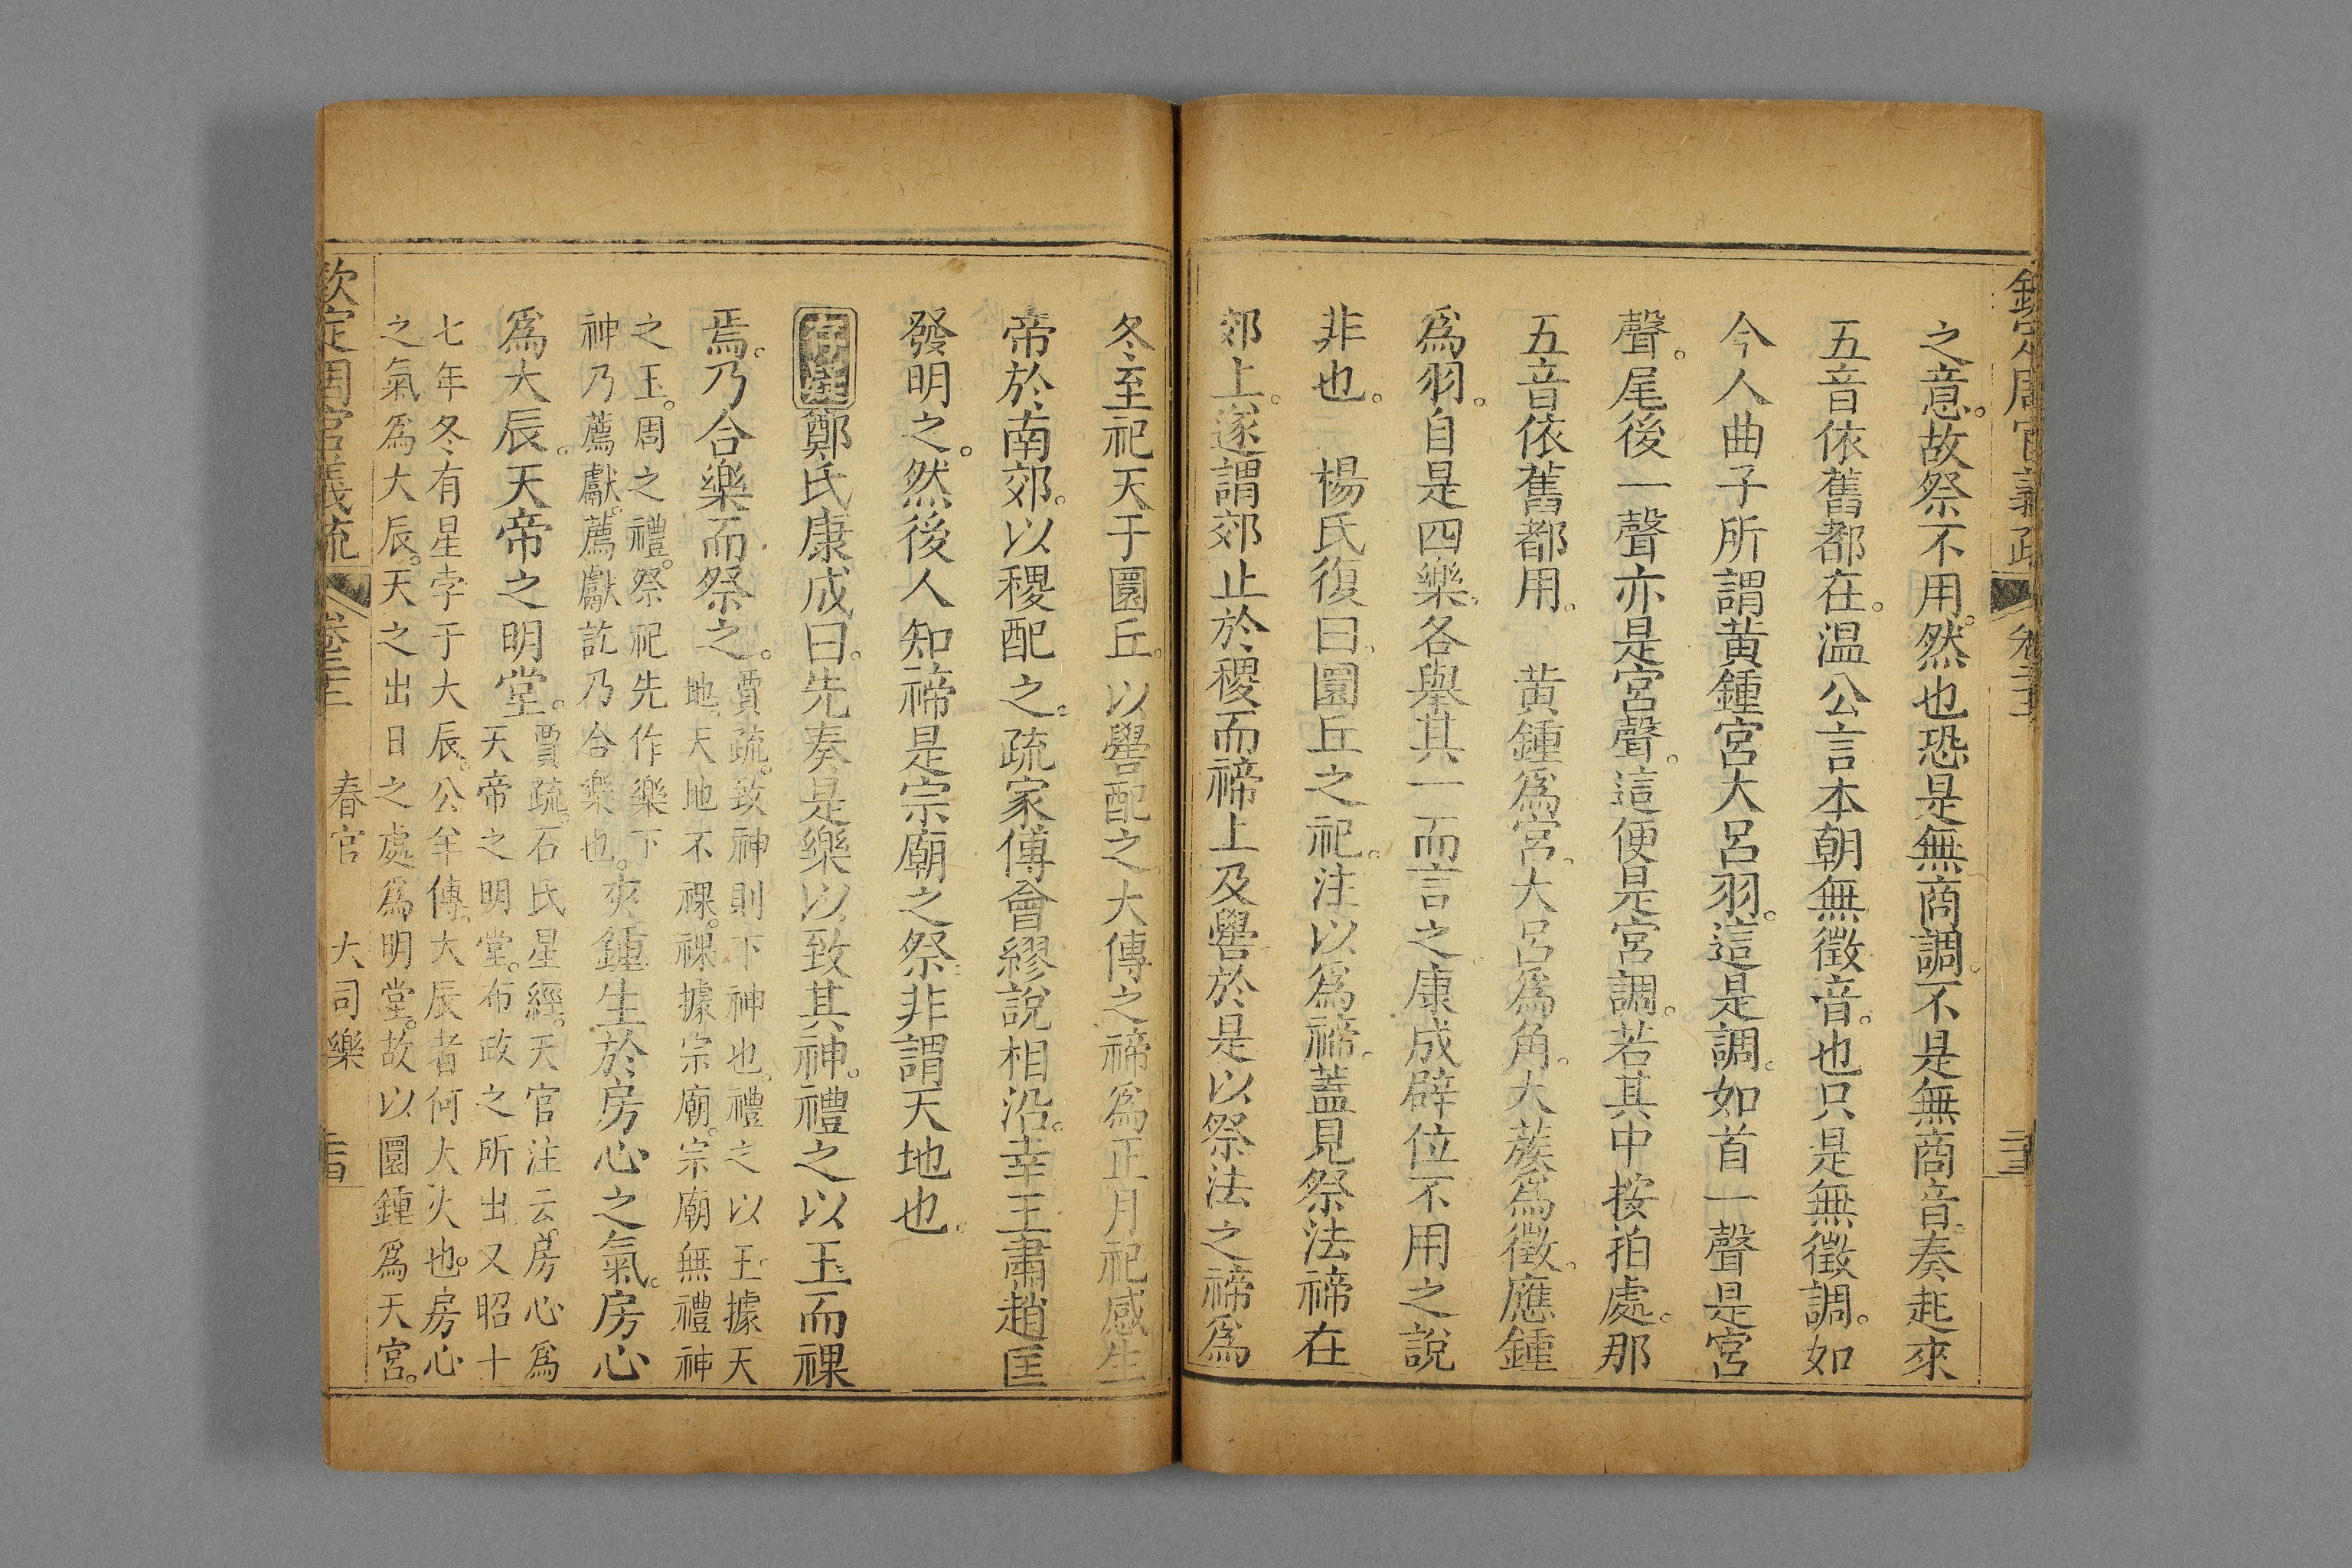 之意。故祭不用。然也恐是無商調。不是無商音。奏起來
五音依舊都在。温公言本朝無徵音。也只是無徵調。如
今人曲子所謂黃鍾宮大呂羽。這是調。如首一聲是宮
聲。尾後一聲亦是宮聲。這便是宮調。若其中按拍處。那
五音依舊都用。 黃鍾爲宮。大呂爲角。太蔟爲徵。應鍾
爲羽。自是四樂。各舉其一而言之。康成辟位不用之說
非也。 楊氏復曰。圜丘之祀。注以爲禘。蓋見祭法禘在
郊上。遂謂郊止於稷而禘上及嚳。於是以祭法之禘爲
冬至祀天于圜丘。以嚳配之。大傳之禘爲正月祀感生
帝於南郊。以稷配之。疏家傅會繆說相沿。幸王肅趙匡
發明之。然後人知禘是宗廟之祭。非謂天地也。
存疑鄭氏康成曰。先奏是樂以致其神。禮之以玉而祼
焉。乃合樂而祭之。賈疏。致神則下神也。禮之以玉。據天
地。天地不祼。祼據宗廟。宗廟無禮神
之玉。周之禮。祭祀先作樂下
神乃薦獻。薦獻訖乃合樂也。夾鍾生於房心之氣。房心
爲大辰。天帝之明堂。賈疏。石氏星經。天官注云。房心爲
天帝之明堂。布政之所出。又昭十
七年冬有星孛于大辰。公羊傳。大辰者何大火也。房心
之氣爲大辰。天之出日之處爲明堂。故以圜鍾爲天宮。
欽定周官義疏 卷二十二 春官 大司樂